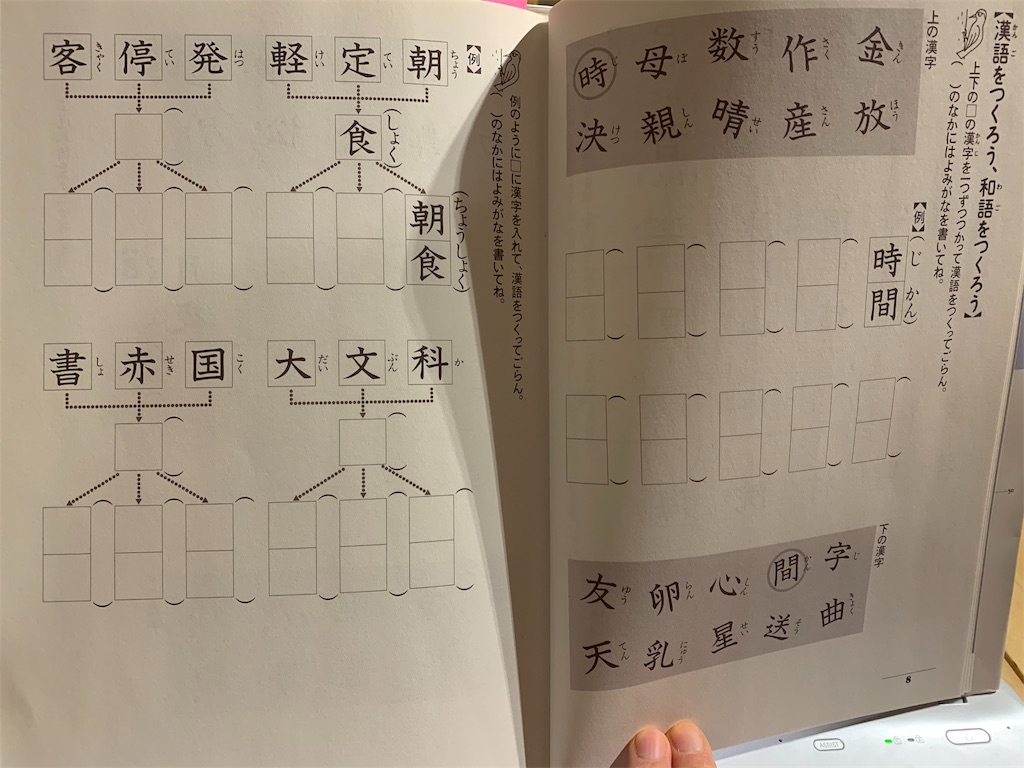 【漢語をつくろう、和語をつくろう】
かんご
わご
上下の□の漢字を一つずつつかって漢語をつくってごらん。
かんじ
（ ）のなかにはよみがなを書いてね。
上の漢字
金 作 数 母 時
きん さく すう ぼ じ
放 産 晴 親 決
ほう さん せい しん けつ
【例】
時間
（じ かん）
下の漢字
字 間 心 卵 友
じ かん しん らん ゆう
曲 送 星 乳 天
きょく そう せい にゅう てん
8
例のように□に漢字を入れて、漢語をつくってごらん。
（ ）のなかにはよみがなを書いてね。
【例】
朝 定 軽
ちょう てい けい
食
（しょく）
朝食
（ちょうしょく）
発 停 客
はつ てい きゃく
科 文 大
か ぶん だい
国 赤 書
こく せき しょ
ASSIST